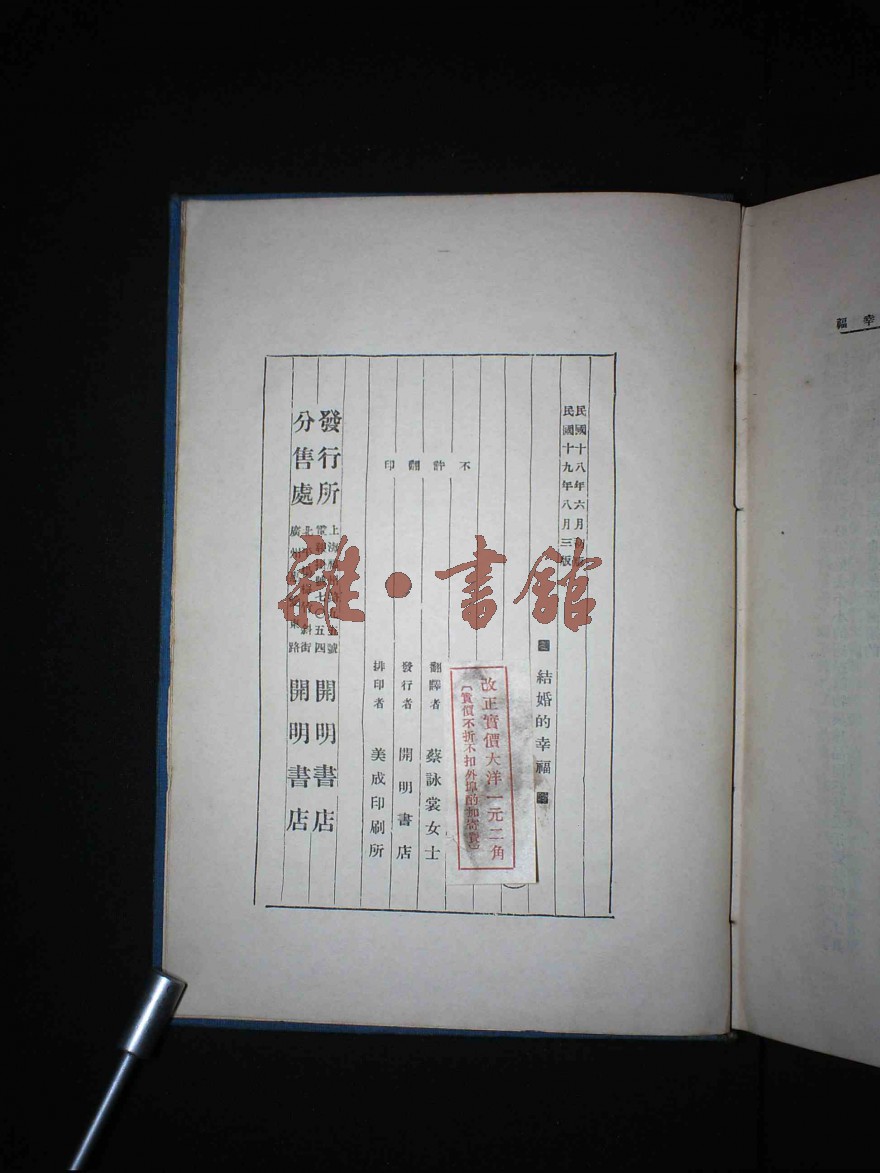 民國十八年六月初版
民國十九年八月三版
結婚的幸福
改正實價大洋一元二角
實價不折不扣外埠酌加寄費
不許翻印
翻譯者 蔡詠裳女士
發行者 開明書店
排印者 美成印刷所
發行所 上海 號 開明書店
電 七〇五四
分售處 北 斜街 開明書店
廣州 路
雜·書館
幸福